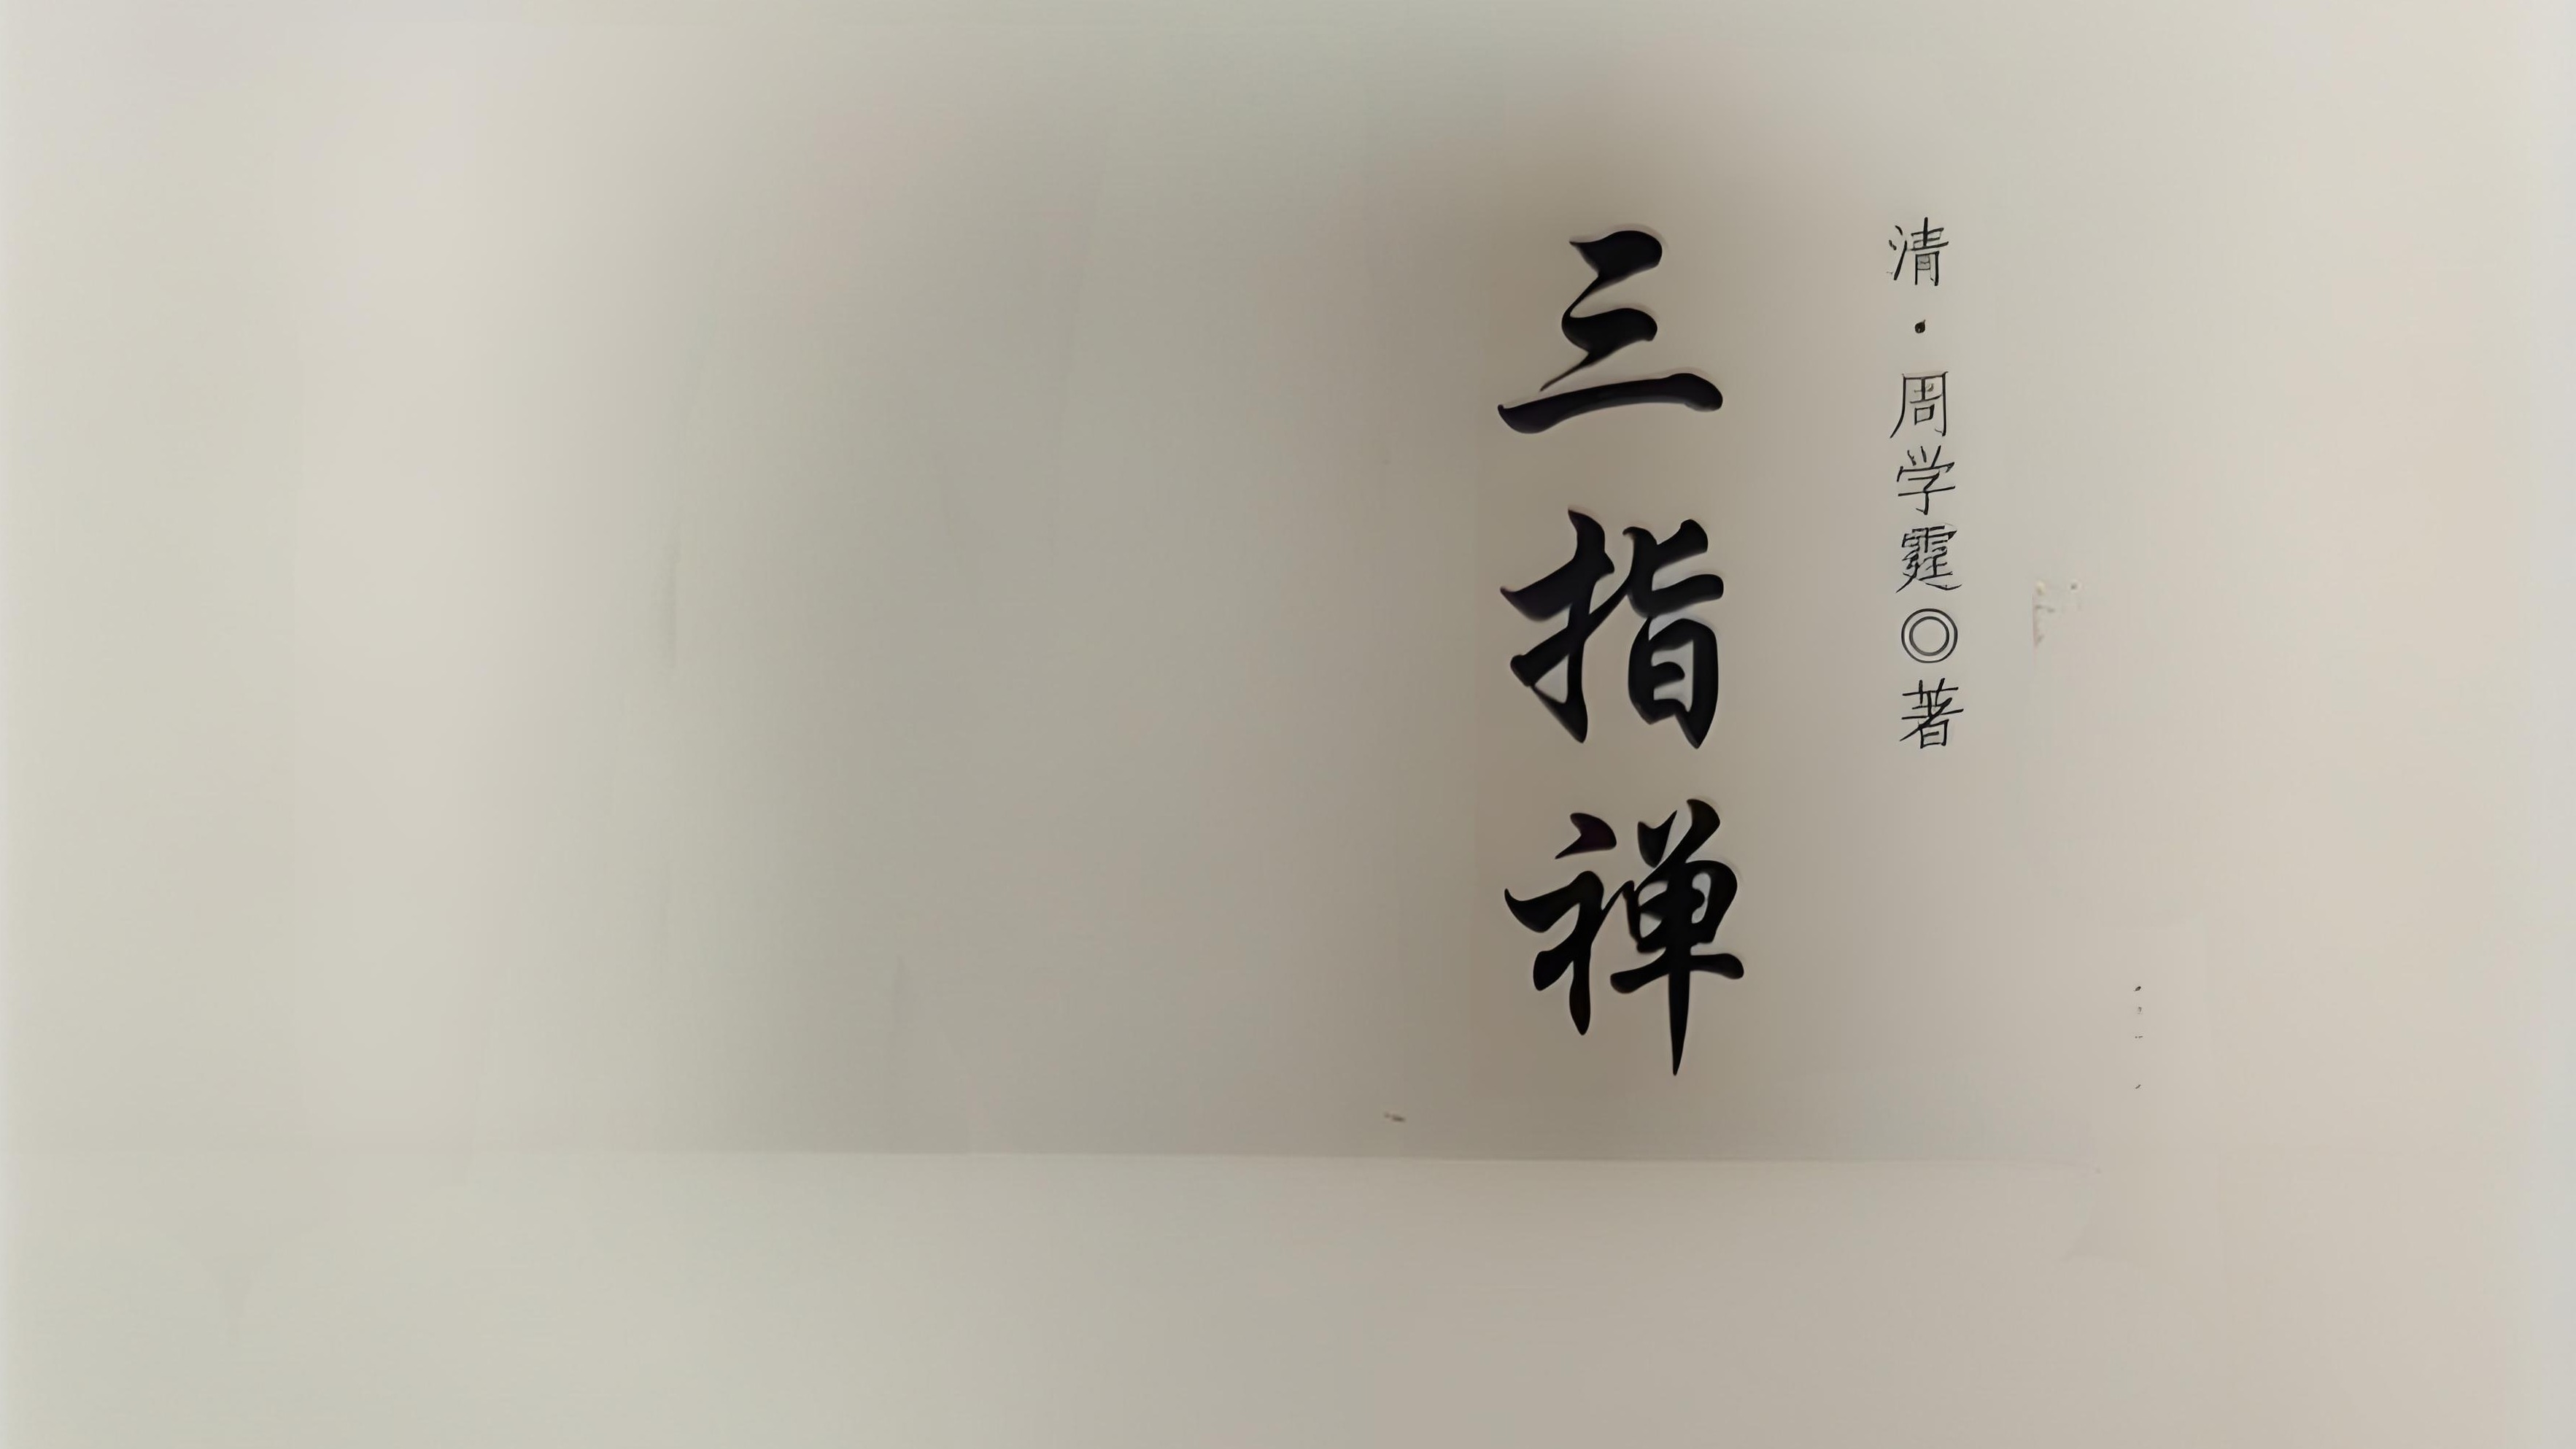 清·周学霆◎著
三指禅